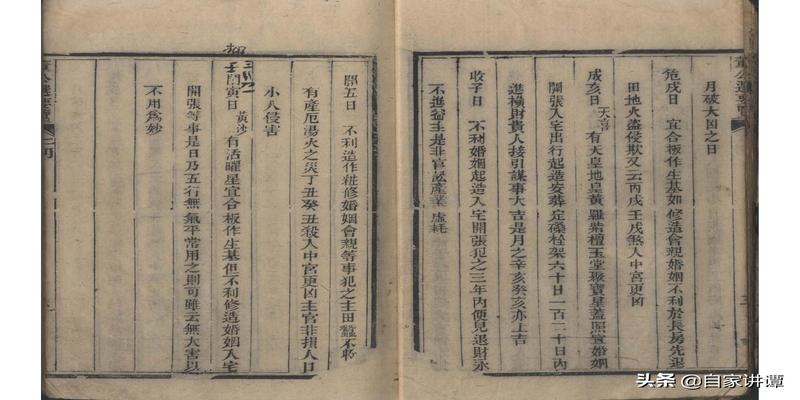 月破大凶之日
危戌日 宜合板作生基如 修造會親婚姻不利於長房先退
田地火盜侵欺又云丙戌壬戌煞入中宮更凶
成亥日 天喜 有天皇地皇黃羅紫檀玉堂聚寶星蓋照宜婚姻
開張入宅出行起造安葬定磉栓架六十日一百二十日內
進橫財貴人接引謀事大吉是月之辛亥癸亥亦上吉
收子日 不利婚姻起造入宅開張犯之三年內便見退財永
不進益主是非官訟產業虛耗
開丑日 不利造作粧修婚姻會親等事犯之主田蠶不收
有產厄湯火之災丁丑癸丑殺入中宮更凶主官非損人口
小人侵害
閉寅日 黃沙 有活曜星宜合板作生基但不利修造婚姻入宅
開張等事是日乃五行無氣平常用之則可雖云無大害以
不用為妙
董公選要覽
頭条 @自家讲谭